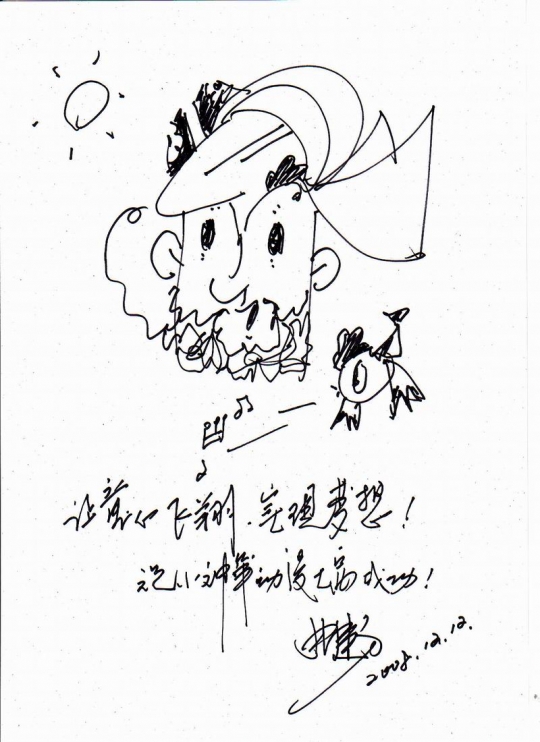 让童心飞翔.实现梦想!
祝小神笔动漫大高成功!
2008.12.12.